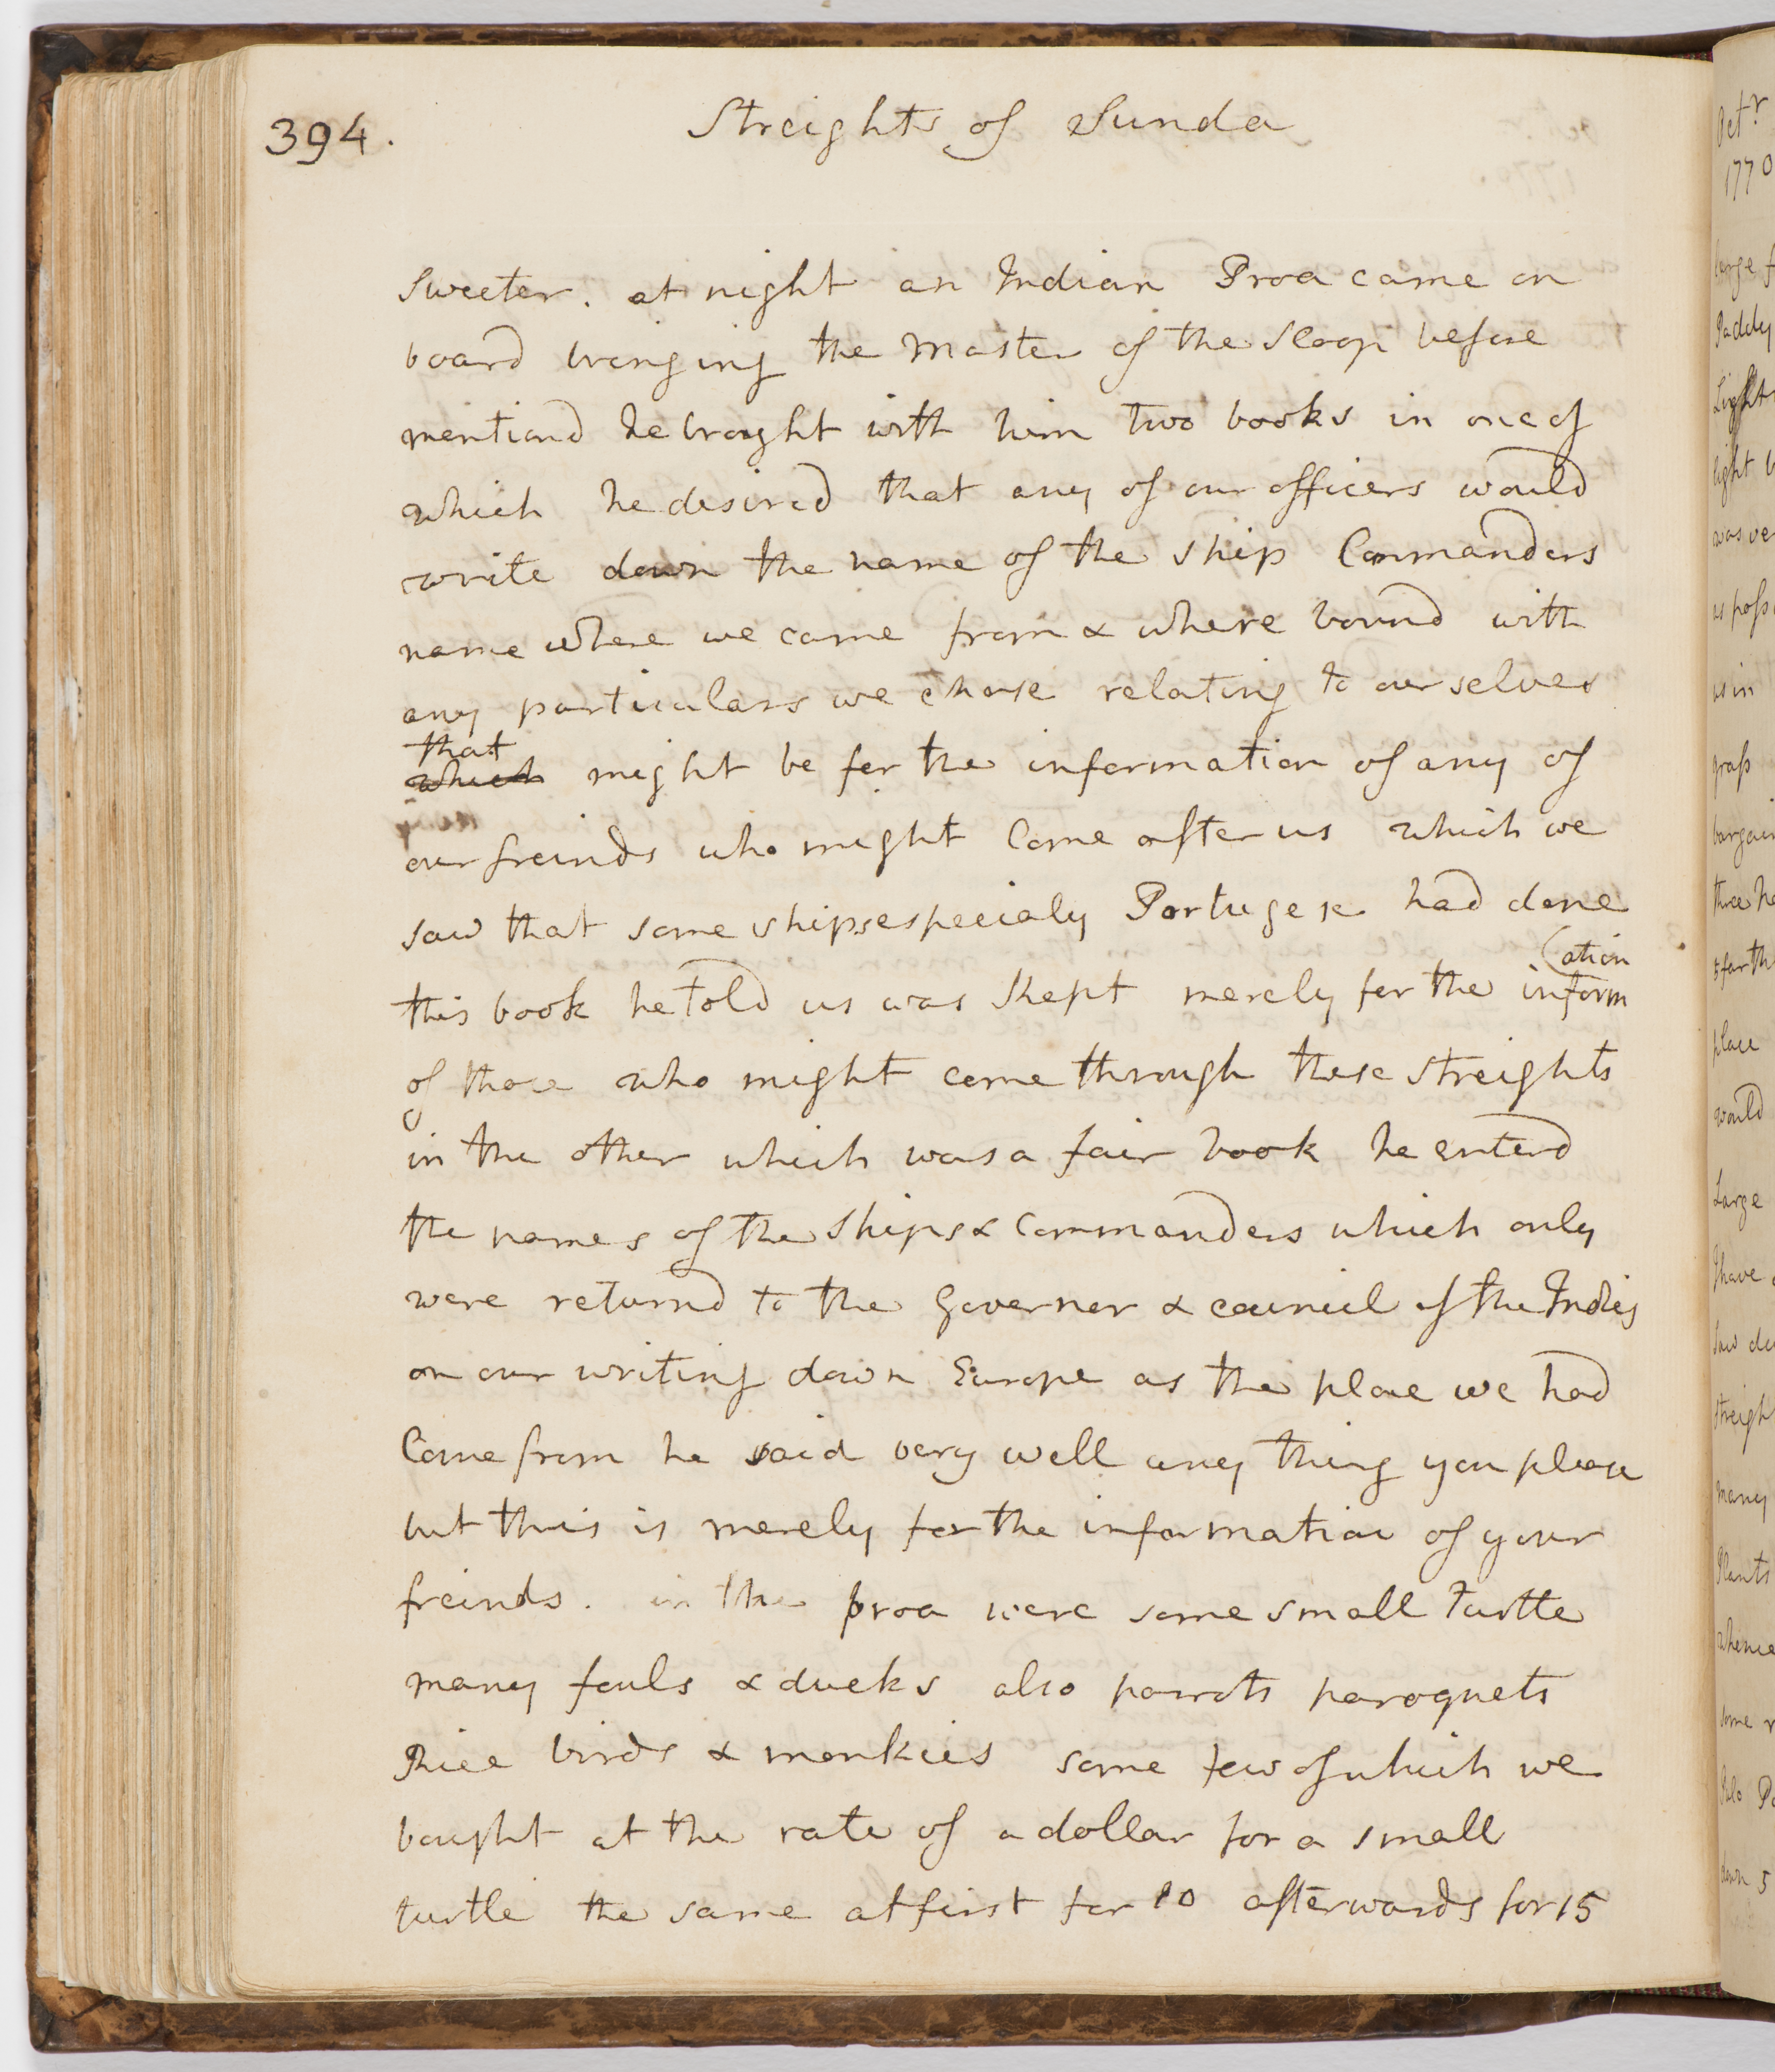 394.
Streights of Sunda
sweeter. at night an Indian Proa came on
board bringing the Master of the Sloop before
mentiond he brought with him two books in one of
which he desired that any of our officers would
write down the name of the ship Commanders
name where we came from & where bound with
any particulars we chose relating to ourselves
that
which might be for the information of any of
our freinds who might Come after us which we
saw that some ships especialy Portugese had done
(ation
this book he told us was Kept merely for the inform
of those who might come through these streights
in the other which was a fair book he enterd
the names of the ships & Commanders which only
were returnd to the Governer & council of the Indies
on our writing down Europe as the place we had
Come from he said very well any thing you please
but this is merely for the information of your
freinds. in the proa were some small turtle
many fouls & ducks also parrots paroquets
Rice birds & monkies some few of which we
bought at the rate of a dollar for a small
turtle the same at first for 10 afterwards for 15
Octr
1770
Large
Paddy
Light
light
was
us in
place
would
Large
I have
saw
many
Plants
whence
some
Pulo
down 5